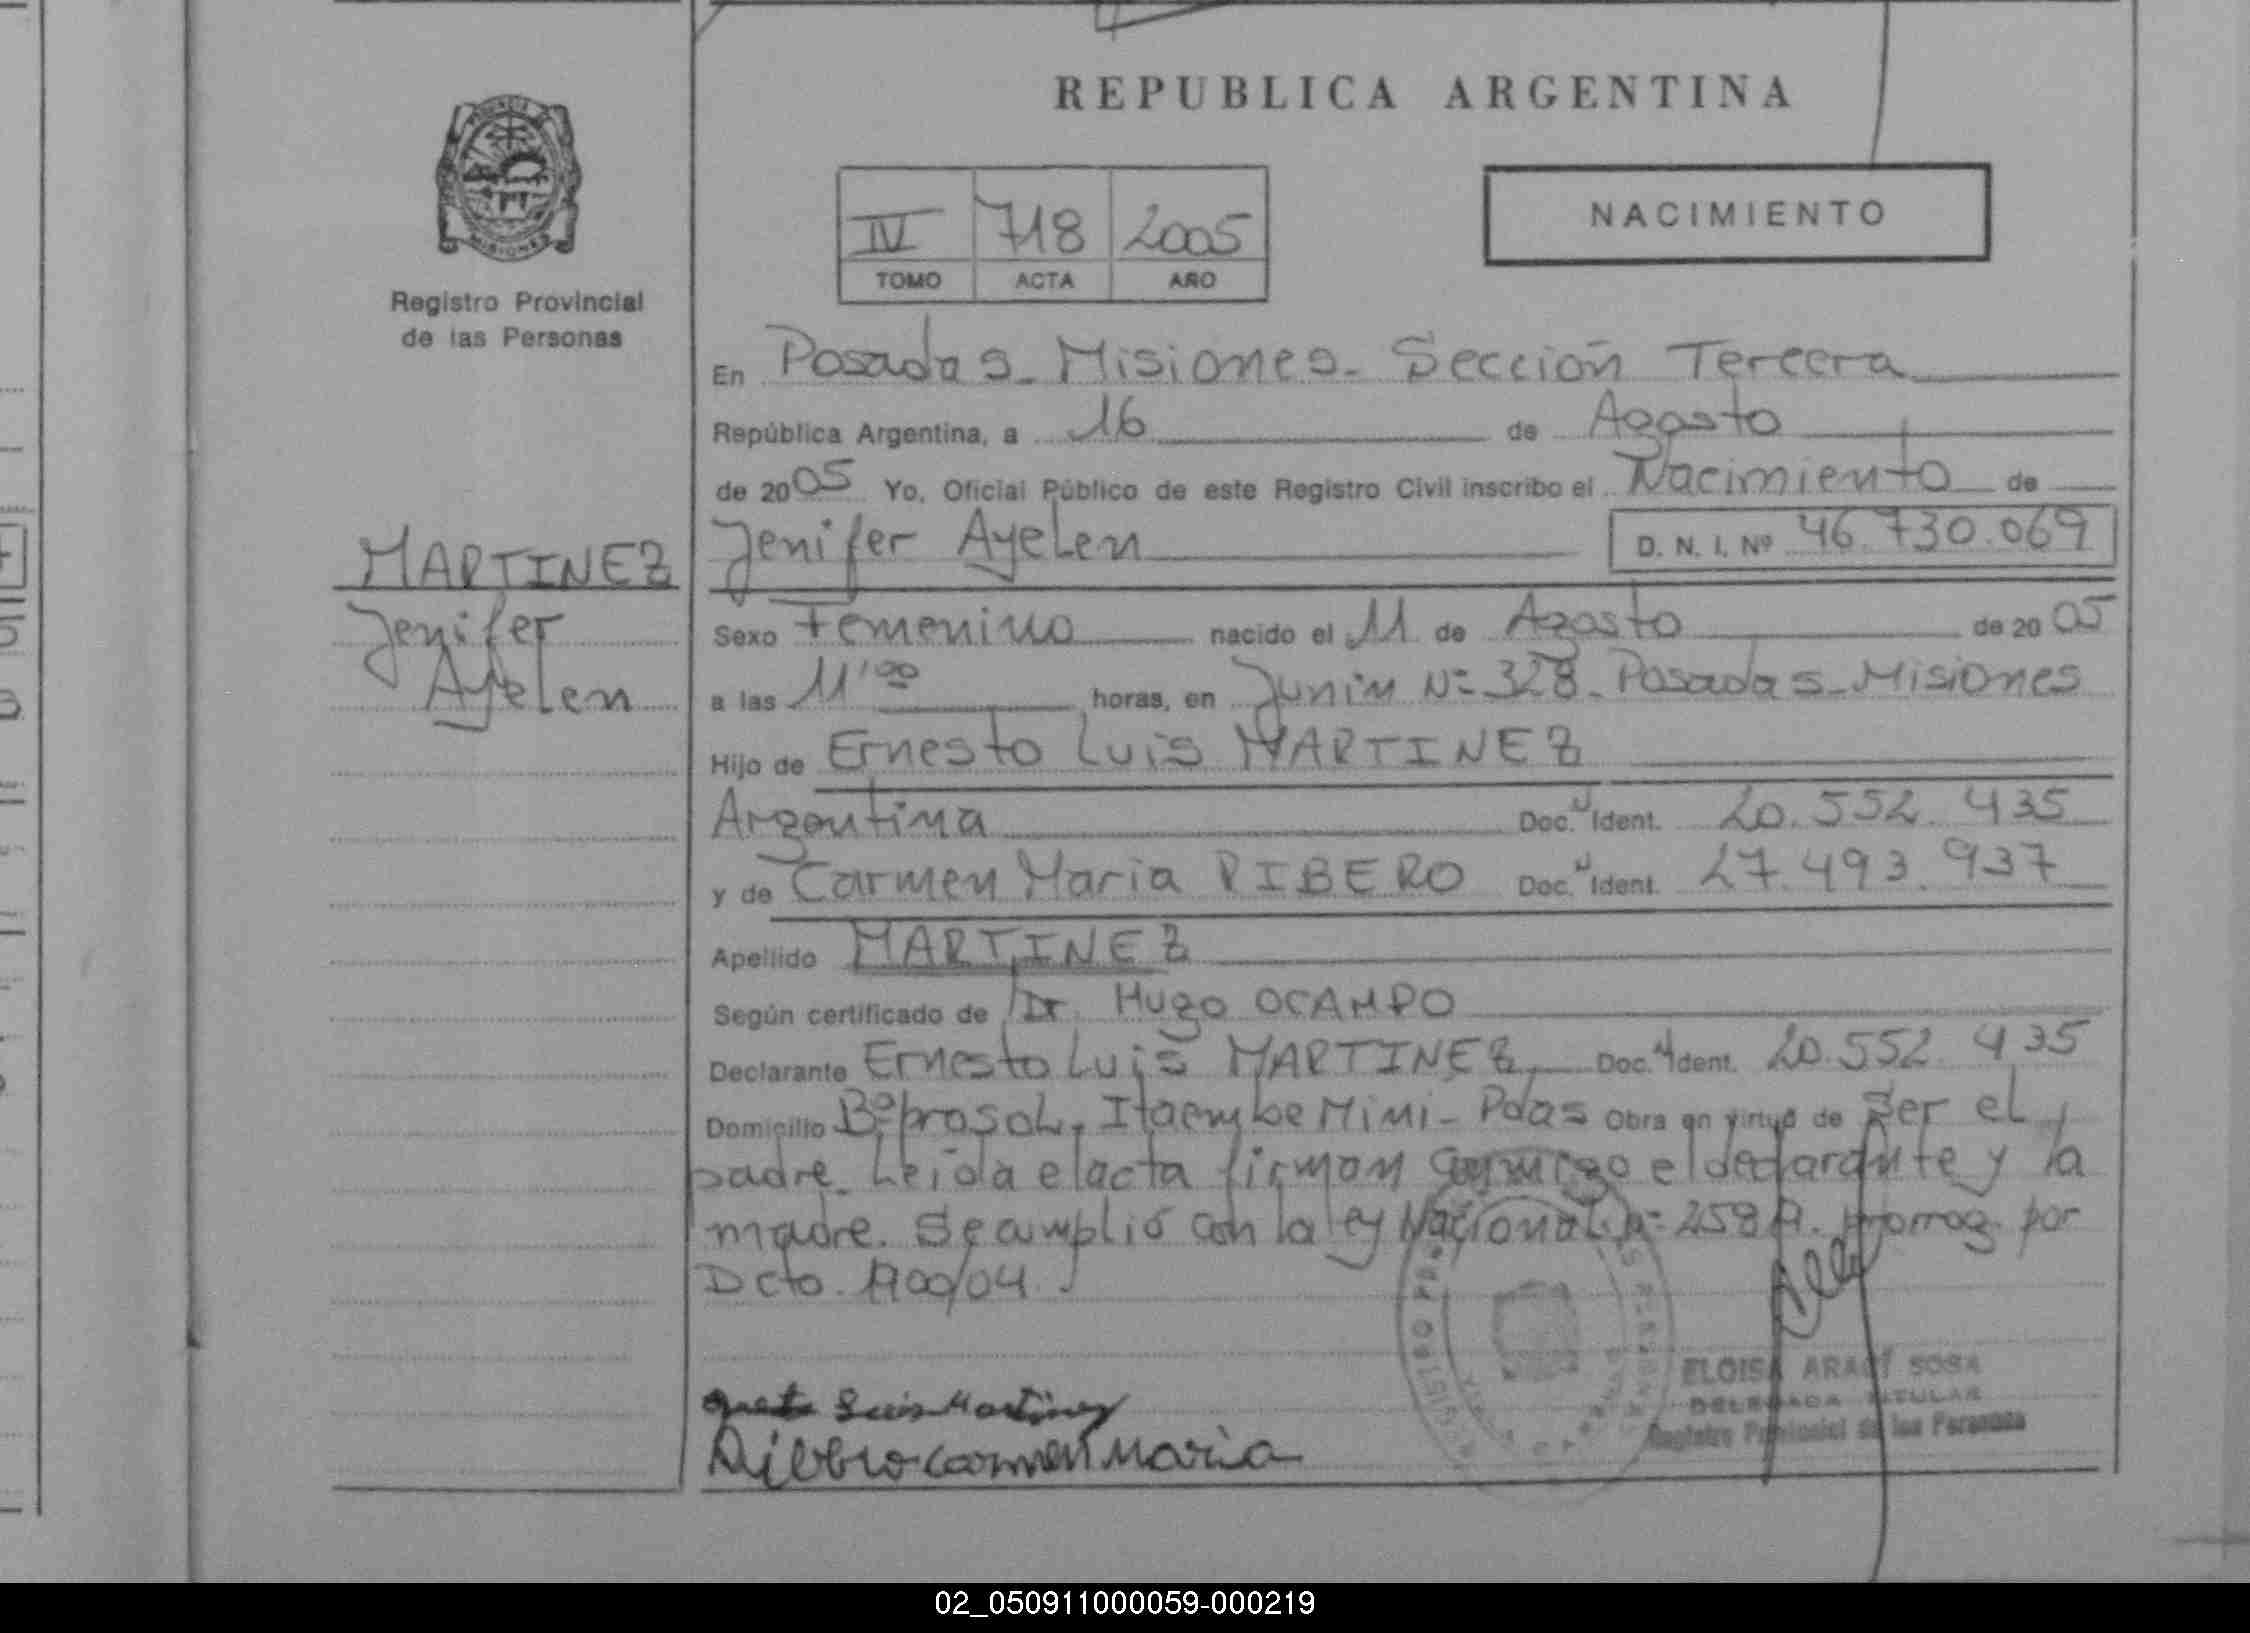 REPUBLICA ARGENTINA
NACIMIENTO
IV 718 2005
TOMO ACTA AÑO
PROVINCIA DE MISIONES
Registro Provincial
de las Personas
MARTINEZ
Jenifer
Ayelen
En Posadas_Misiones_Sección Tercera
República Argentina, a 16 de Agosto
de 2005 Yo, Oficial Público de este Registro Civil inscribo el Nacimiento de
Jenifer Ayelen D. N. I. Nº 46.730.069
Sexo Femenino nacido el 11 de Agosto de 2005
a las 11'00 horas, en Junin Nº 328_Posadas_Misiones
Hijo de Ernesto Luis MARTINEZ
Argentina Doc. Ident. 20.552.435
y de Carmen Maria RIBERO Doc. Ident. 27.493.937
Apellido MARTINEZ
Según certificado de Dr. Hugo OCAMPO
Declarante Ernesto Luis MARTINEZ Doc. Ident. 20.552.435
Domicilio Bº prosol, Itaembe Mini_Pdas Obra en virtud de ser el
padre. Leida el acta firman conmigo el declarante y la
madre. Se amplió con la ley Nacional nº 25819. prorrog. por
Dcto. 1900/04
Luis Martinez
Ribero Carmen Maria
ELOISA ARACÍ SOSA
DELEGADA TITULAR
Registro Provincial de las Personas
02_050911000059-000219